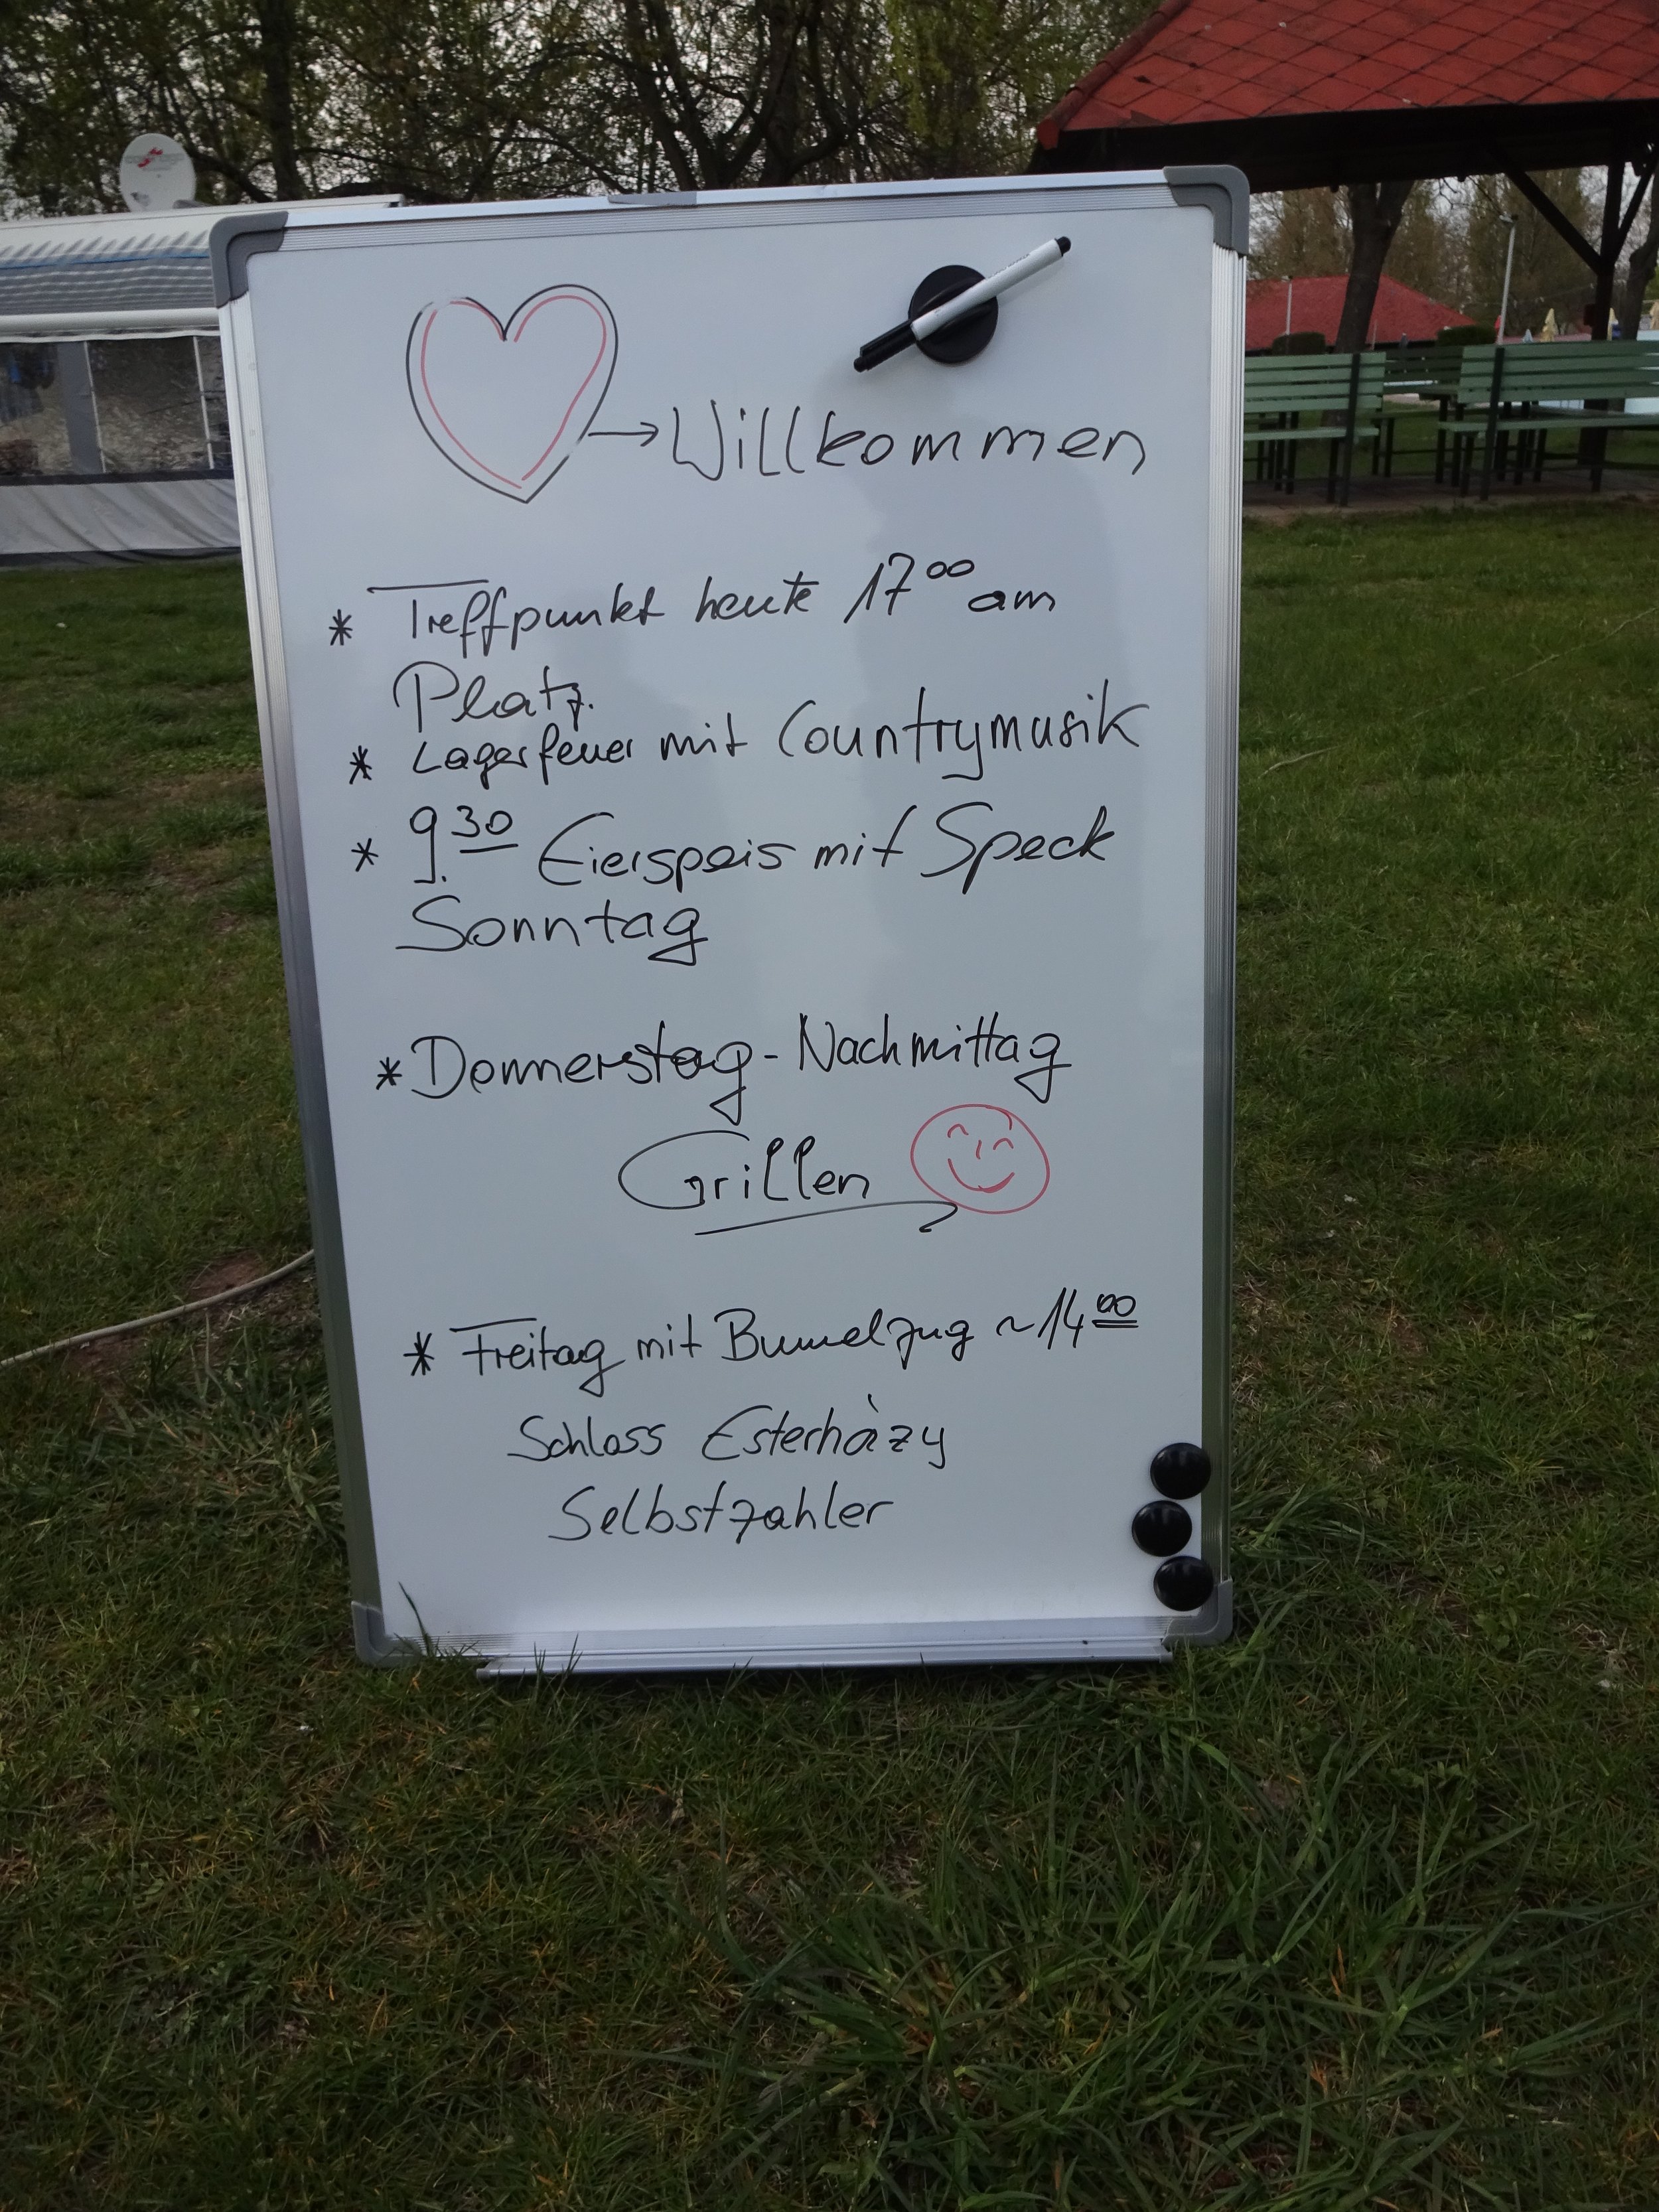 Willkommen
* Treffpunkt heute 17⁰⁰ am
Platz.
* Lagerfeuer mit Countrymusik
* 9.³⁰ Eierspeis mit Speck
Sonntag
* Donnerstag - Nachmittag
Grillen
* Freitag mit Bummelzug ~ 14⁰⁰
Schloss Esterhàzy
Selbstzahler